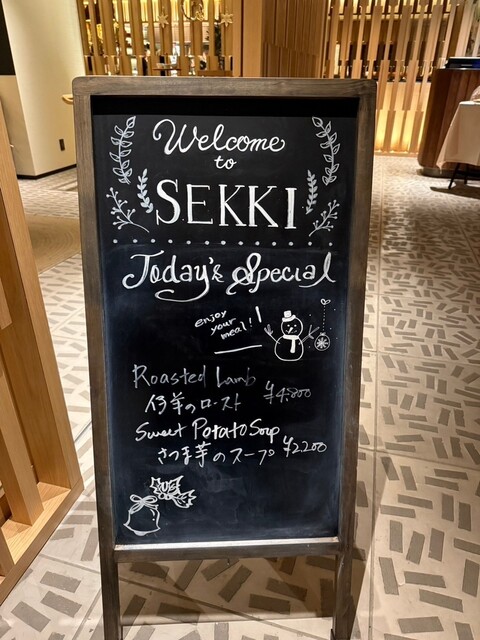 Welcome
to
SEKKI
Today's Special
enjoy
your
meal!!
Roasted Lamb
仔羊のロースト ¥4,800
Sweet Potato Soup
さつま芋のスープ ¥2,200